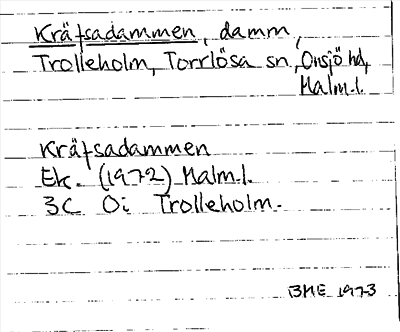 Kräfsadammen, damm,
Trolleholm, Torrlösa sn., Onsjö hd,
Malm.l.
Kräfsadammen
Ek. (1972) Malm.l.
3C 0i Trolleholm.
BME 1973